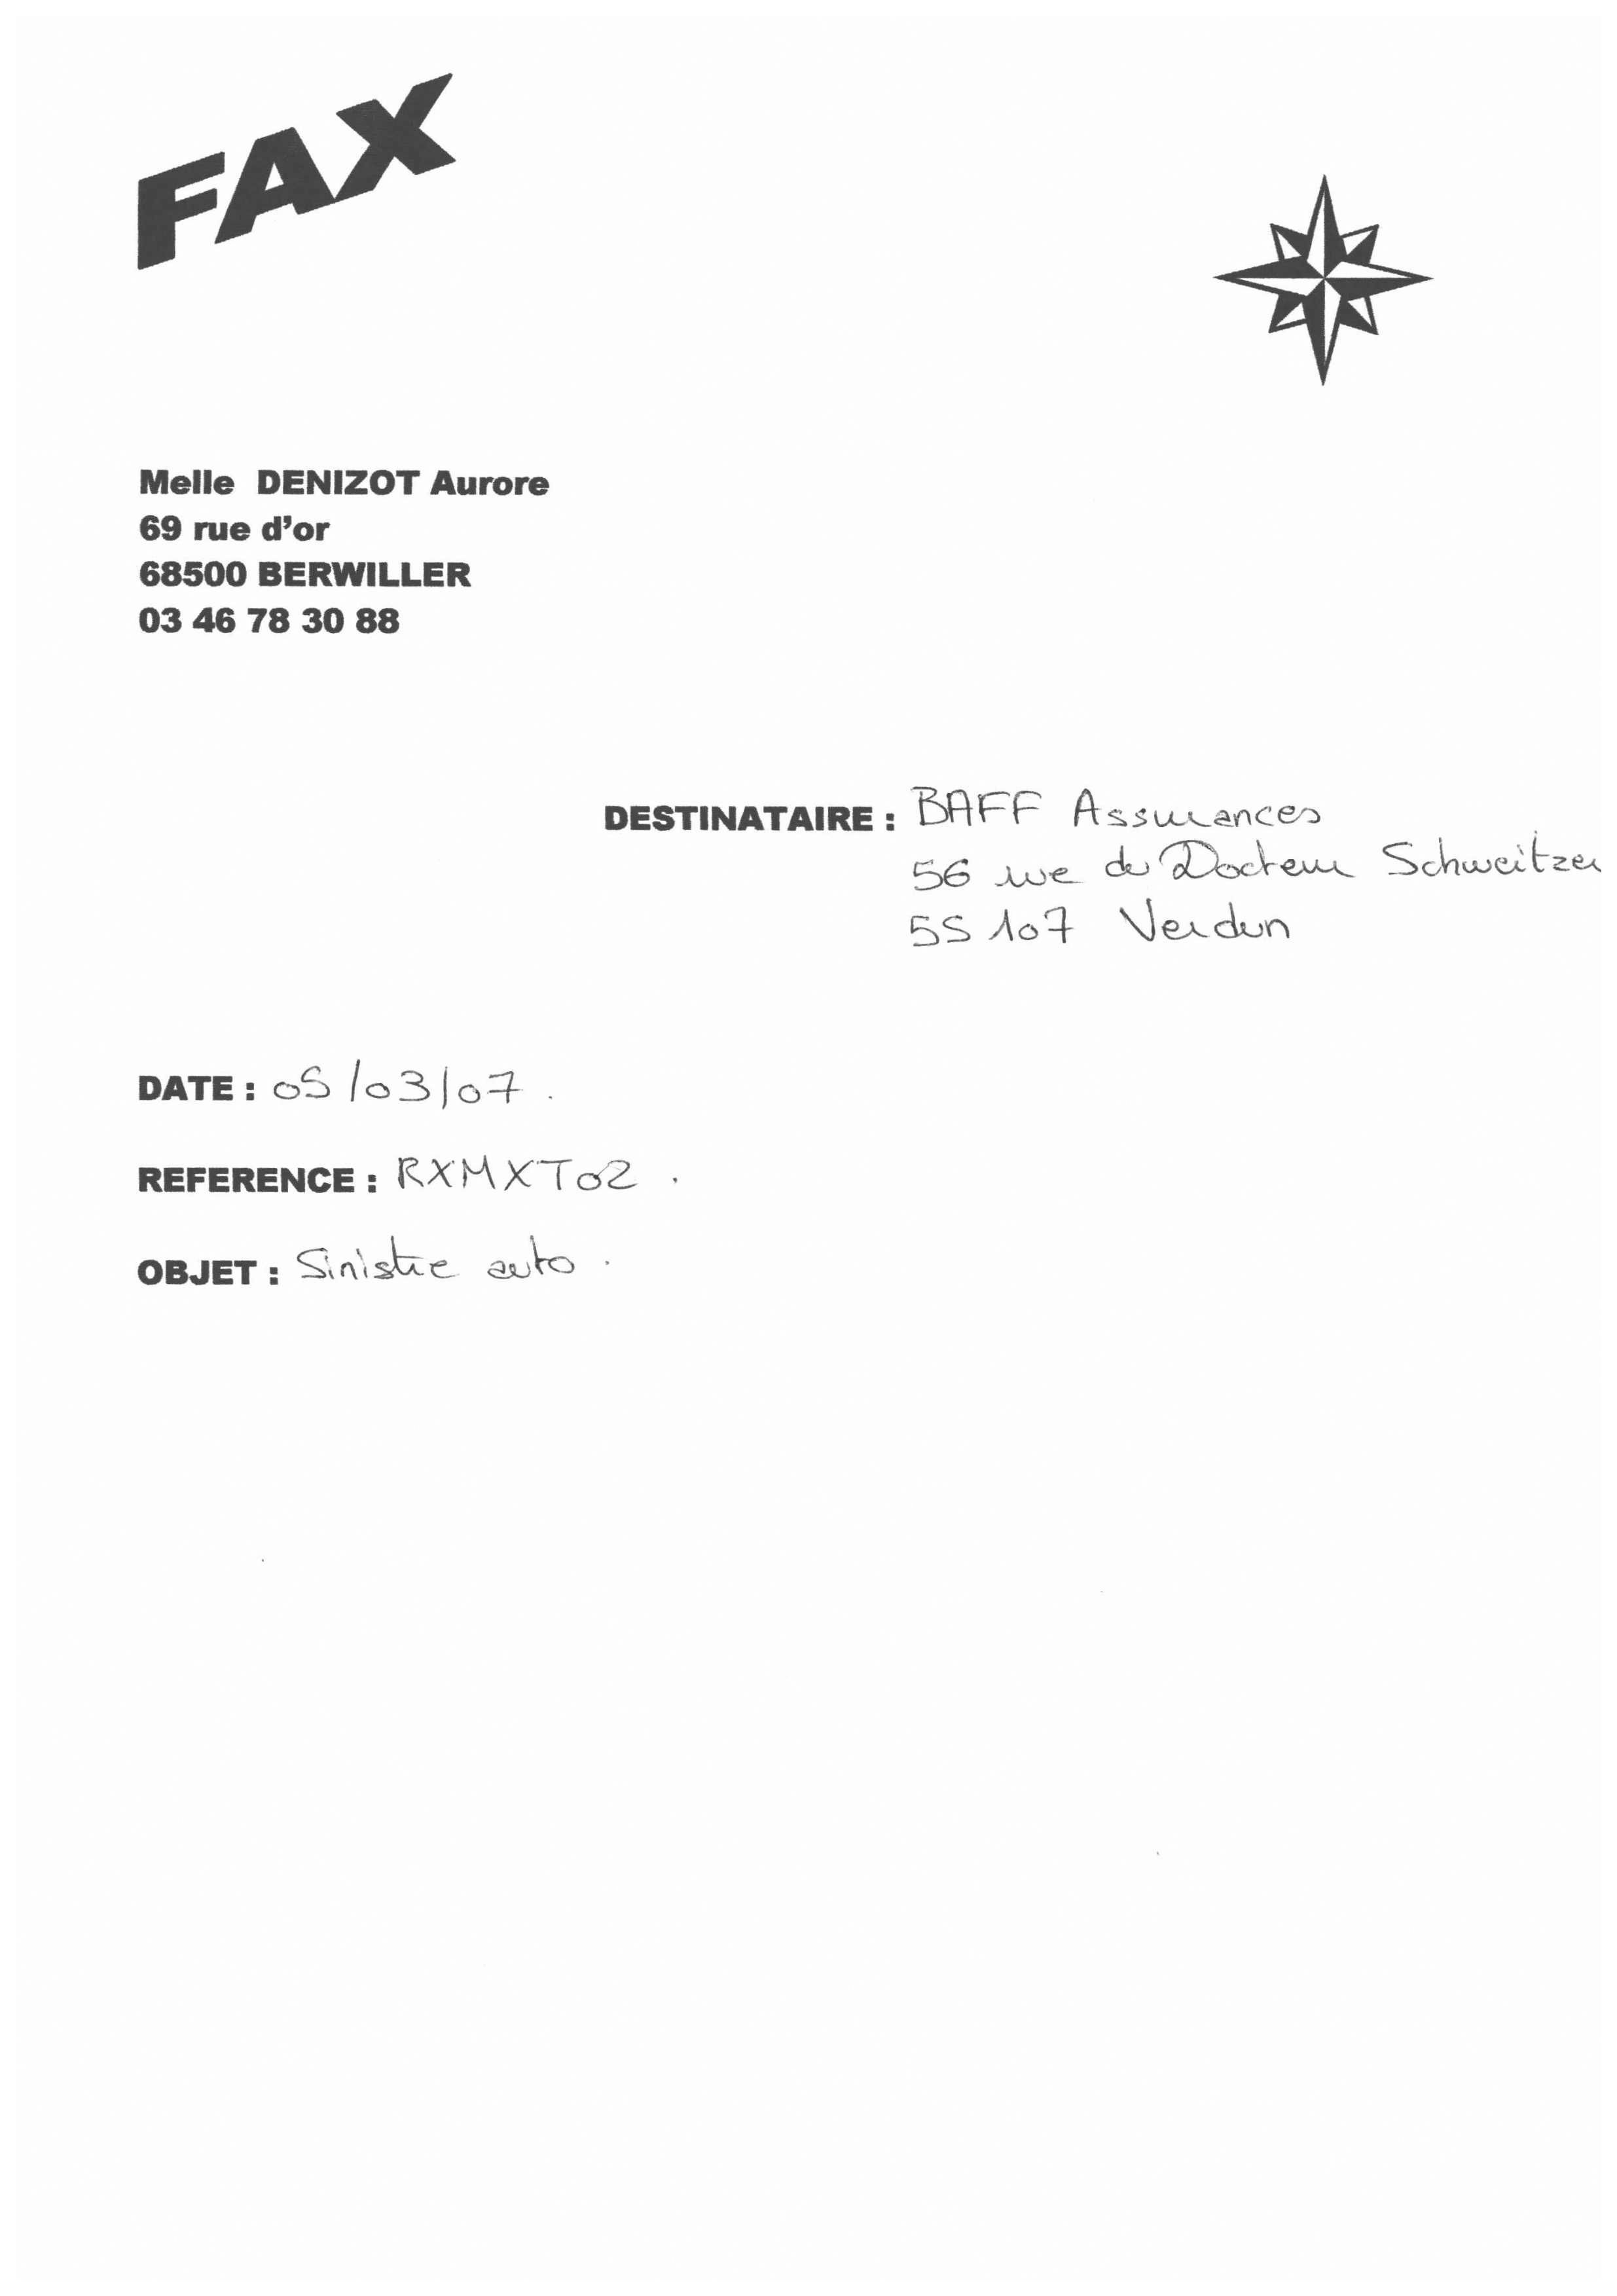 FAX
Melle DENIZOT Aurore
69 rue d'or
68500 BERWILLER
03 46 78 30 88
DESTINATAIRE : BAFF Assurances
56 rue du Docteur Schweitzer
55107 Verdun
DATE : 05/03/07.
REFERENCE : RXMXT02.
OBJET : Sinistre auto.